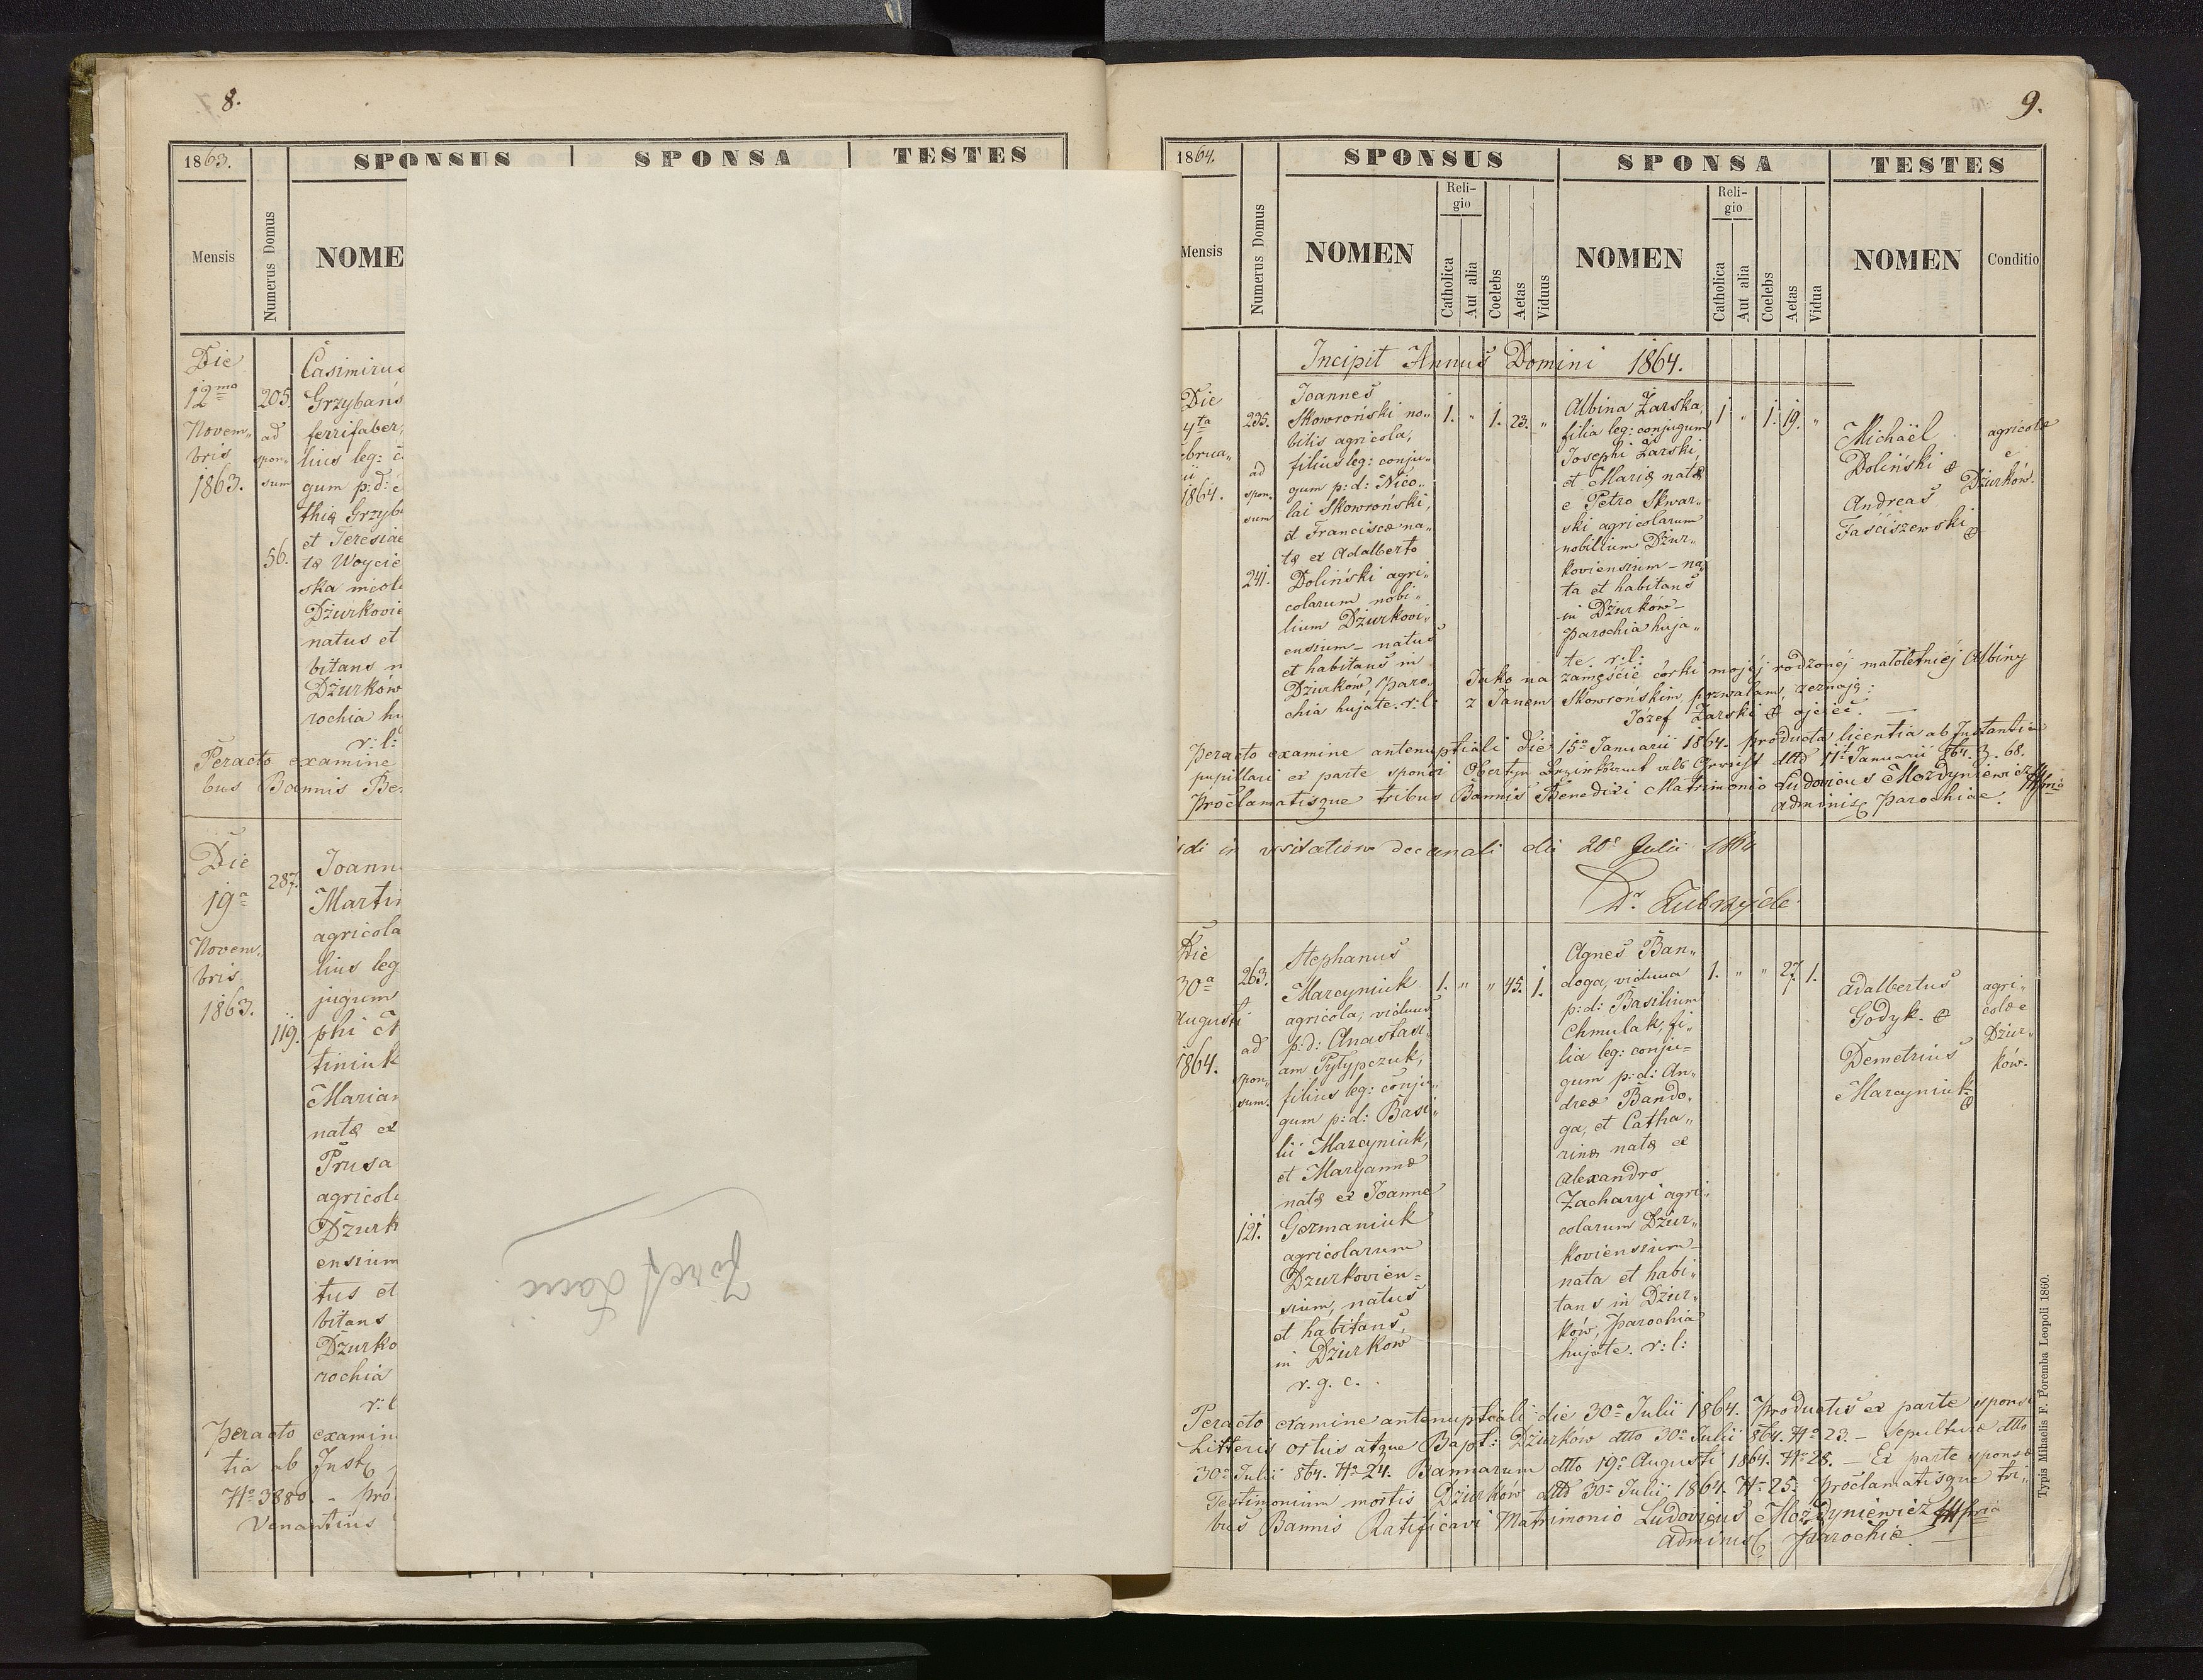 8.
1863.
SPONSUS
SPONSA
TESTES
Mensis
Numerus Domus
NOME
Die
12ma
Novem„
bris
1863.
205.
ad
spon„
sum
56.
Casimirus
Grzybańs
ferrifaber,
lius leg: c
gum p: d:
thiæ Grzyb
et Teresiae
tæ Woycie
ska incola
Dżurkovie
natus et
bitans
Dżurków
rochia hu
r: l:
Peracto examine
bus Bannis Be
Die
19a
Novem„
bris
1863.
287.
119.
Joann
Martin
agricola
lius leg
jugum
phi
tiniuk
Marian
natæ ex
Prusa
agricol
Dżurk
ensium
tus et
bitans
Dżurko
rochia
r: l
Peracto examin
tia ab Inst
No 3880. - pro
Venantius
Józef
9.
1864.
SPONSUS
SPONSA
TESTES
Mensis
Numerus Domus
NOMEN
Reli-
gio
Catholica
Aut alia
Coelebs
Aetas
Viduus
NOMEN
Reli-
gio
Catholica
Aut alia
Coelebs
Aetas
Vidua
NOMEN
Conditio
Incipit Annus Domini 1864.
Die
4ta
brua„
ii
1864.
235.
ad
spon„
sum
241.
Joannes
Skowroński no„
bilis agricola,
filius leg: conju„
gum p: d: Nico„
lai Skowroński,
et Franciscæ na„
tæ ex Adalberto
Doliński agri„
colarum nobi„
lium Dżurkovi„
ensium - natus
et habitans in
Dżurków, Paro„
chia hujate. r: l:
1. „ 1. 23. „
Albina Żarska,
filia leg: conjugum
Josephi Żarski,
et Mariæ natæ
e Petro Skwar„
ski agricolarum
nobilium Dżur„
koviensium - na„
ta et habitans
in Dżurków -
Parochia huja„
te. r: l:
1 „ 1. 19. „
Michaël
Doliński &
Andreas
Faściszewski
agricolæ
e
Dżurków.
Jako na zamęście córki mojéj rodzonéj małoletniéj Albiny
z Janem Skowrońskim pozwalam, zeznaję:
Józef Żarski ojciec. —
Peracto examine antenuptiali die 15a Januarii 1864. producta licentia ab Instantia
pupillari ex parte sponsi Obertyn Bezirksamt als Gericht dtto 11t Januarii 864. Z. 68.
Proclamatisque tribus Bannis Benedixi Matrimonio Ludovicus Możdyniewicz
Adminis Parochiae.
di in visitatione decanali die 20a Julii 1864
Dr.
Die
30a
Augusti
1864.
263.
ad
spon„
sum.
121.
Stephanus
Marcyniuk
agricola, viduus
p: d: Anastasi„
am Pylypczuk,
filius leg: conju„
gum p: d: Basi„
lii Marcyniuk,
et Maryannæ
natæ ex Joanne
Germaniuk
agricolarum
Dżurkovien=
sium, natus
et habitans,
in Dżurkow
r. g. c.
1. „ „ 45. 1.
Agnes Ban„
doga, vidua
p: d: Basilium
Chmulak, fi„
lia leg: conju=
gum p: d: An„
dreæ Bando„
ga, et Catha„
rinæ natæ ex
Alexandro
Zacharyi agri„
colarum Dżur„
koviensium -
nata et habi„
tans in Dżur„
ków, Parochia
hujate. r: l:
1. „ „ 27. 1.
Adalbertus
Godyk. &
Demetrius
Marcyniuk
agri„
colæ e
Dżur„
ków.
Peracto examine antenuptiali die 30a Julii 1864. Productis ex parte sponsi
Litteris ortus atque Bapt: Dżurków dtto 30a Julii 864. No 23. - Sepulturæ dtto
30a Julii 864. No 24. Bannarum dtto 19a Augusti 1864. No 28. - Ex parte sponsæ
Testimonium mortis Dżurków dtto 30a Julii 1864. No 25. Proclamatisque tri„
bus Bannis Ratificavi Matrimonio Ludovicus Możdyniewicz
Adminis Parochiæ.
Typis Mihaelis F. Poremba Leopoli 1860.